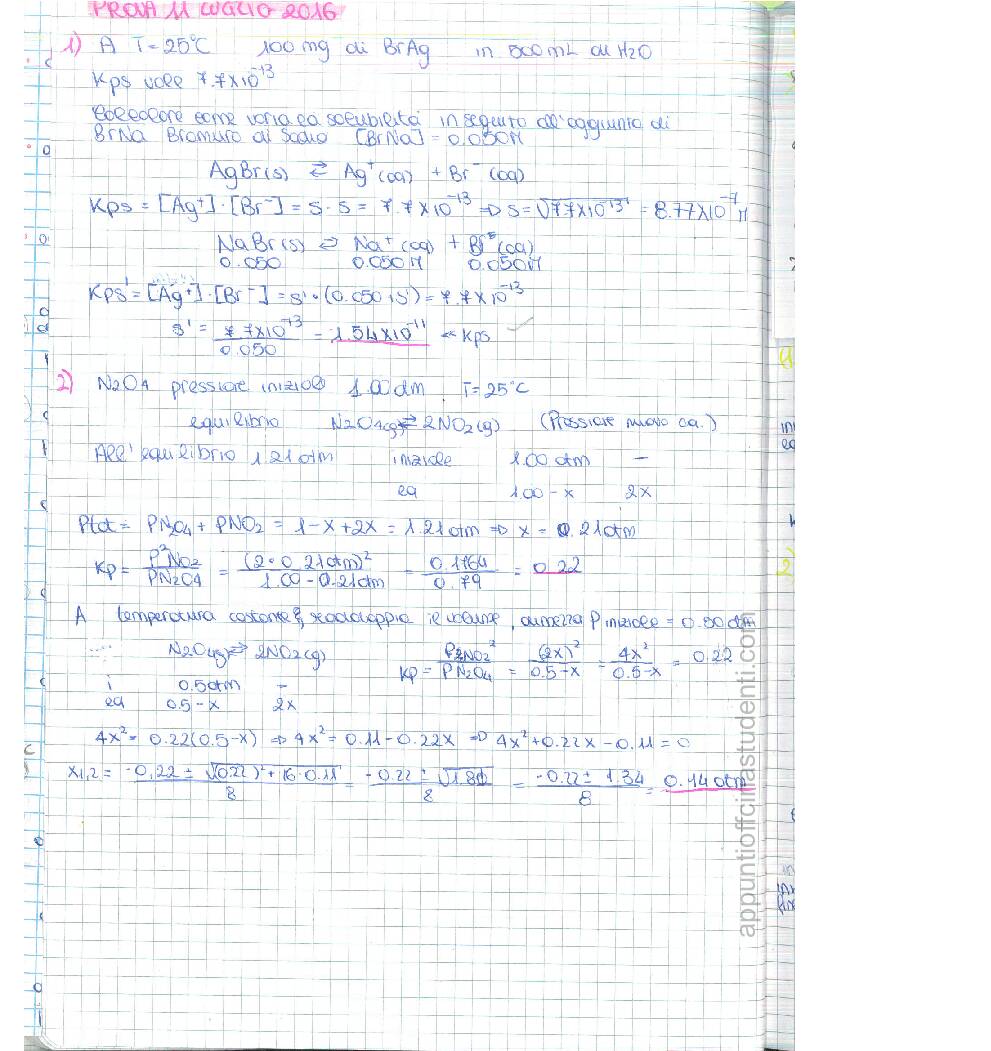 PROVA 11 LUGLIO 2016
1) A T=25°C 100 mg di BrAg in 500 mL di H2O
Kps vale 7.7x10^-13
Calcolare come varia la solubilità in seguito all'aggiunta di
BrNa Bromuro di Sodio [BrNa] = 0.050M
AgBr(s) ⇄ Ag+(aq) + Br-(aq)
Kps = [Ag+]·[Br-] = S·S = 7.7x10^-13 => S=√7.7x10^-13 = 8.77x10^-7 M
NaBr(s) ⇄ Na+(aq) + Br-(aq)
0.050 0.050M 0.050M
Kps' = [Ag+]·[Br-] = s'·(0.050+s') = 7.7x10^-13
s' = 7.7x10^-13 / 0.050 = 1.54x10^-11 Kps
2) N2O4 pressione iniziale 1.00 atm, T=25°C
equilibrio N2O4(g) ⇄ 2NO2(g) (Pressione nuovo eq.)
All'equilibrio 1.21 atm iniziale 1.00 atm —
eq 1.00-x 2x
Ptot = PN2O4 + PNO2 = 1-x+2x = 1.21 atm => x = 0.21 atm
Kp = P²NO2 / PN2O4 = (2·0.21 atm)² / 1.00-0.21 atm = 0.1764 / 0.79 = 0.22
A temperatura costante raddoppia il volume, dimezza P iniziale = 0.50 atm
N2O4(g) ⇄ 2NO2(g) Kp = PNO2² / PN2O4 = (2x)² / 0.5-x = 4x² / 0.5-x = 0.22
i 0.5 atm -
eq 0.5-x 2x
4x² = 0.22(0.5-x) => 4x² = 0.11-0.22x => 4x²+0.22x-0.11 = 0
x1,2 = -0,22 ± √(0.22)²+16·0.11 / 8 = -0.22 ± √1.81 / 8 = -0.22 ± 1.34 / 8 = 0.14 atm
appuntioffcinastudenti.com